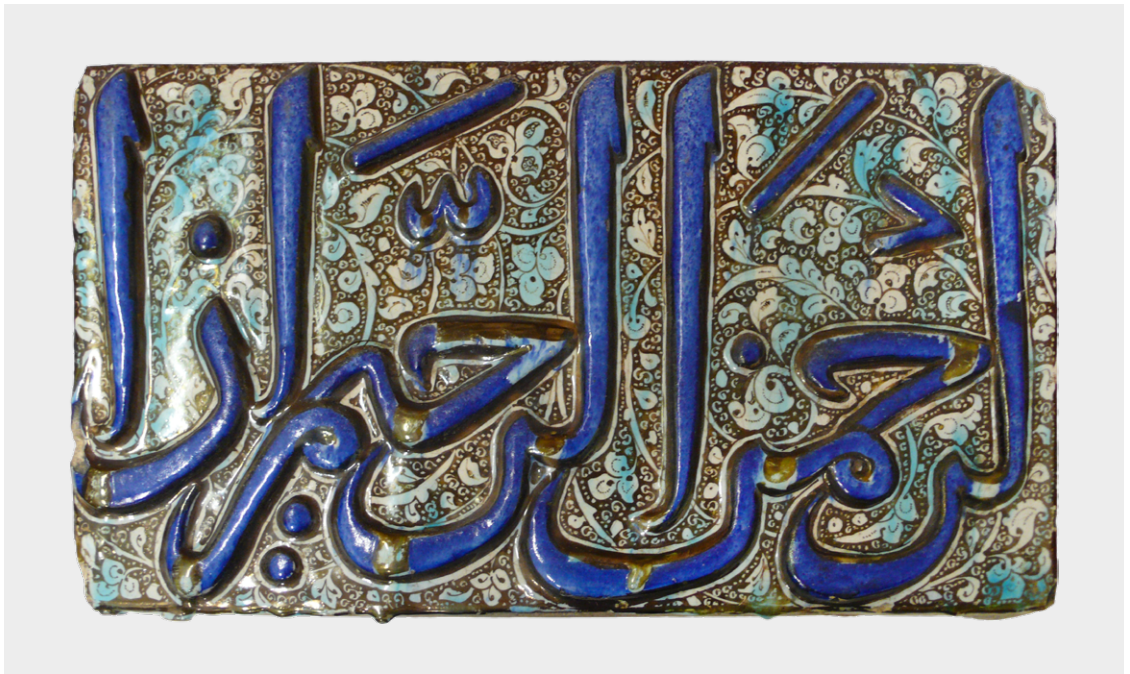 لرحمن الرحيم انا